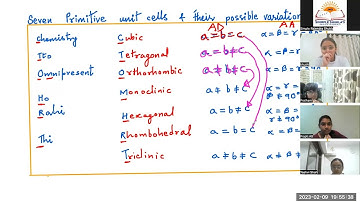 Seven Primitive unit cells & their possible variation
AD AA
Chemistry Cubic a = b = c α = β = γ =
TEO Tetragonal a = b ≠ c α = β =
Omnipresent Orthorhombic a ≠ b ≠ c α = β = γ
Monoclinic a ≠ b ≠ c α = γ = ≠ 90°
Ho Hexagonal a = b ≠ c α = β = γ ≠ 90°
Rahi Rhombohedral a = b = c α = β =
Thi Triclinic a ≠ b ≠ c α ≠ β ≠
2023-02-09 19:55:38